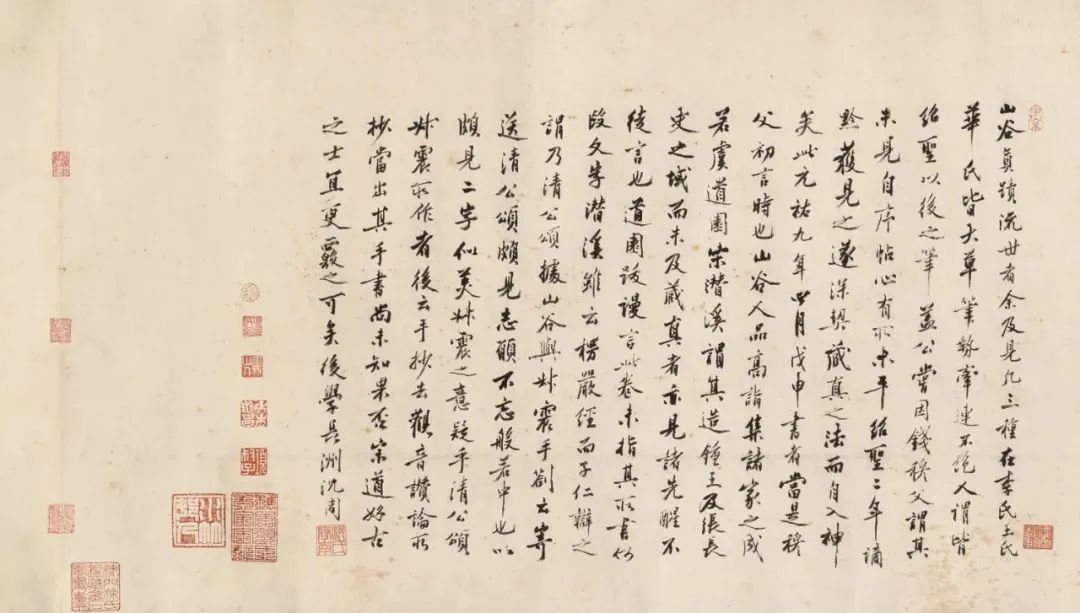 山谷真蹟流世者余及見凡三種在李氏王氏
華氏皆大草筆勢牽連不絶人謂皆
紹聖以後之筆蓋公嘗因錢穆父謂其
未見自序帖心有所未平紹聖二年謫
黔獲見之遂深契藏真之法而自入神
矣此元祐九年四月戊申書者當是穆
父初言時也山谷人品高詣集諸家之成
若虞道園宋潛溪謂其造鍾王及張長
史之域而未及藏真者亦見諸先醒不
徒言也道園跋謾言此卷未指其所書何
故文李潛溪雖云楞嚴經而子仁辯之
謂乃清公頌據山谷與艸震手劄云寄
送清公頌頗見志願不忘般若中也以
頗見二字似美艸震之意疑乎清公頌
艸震所作者後云手抄去觀音讚論所
抄當出其手書尚未知果否宗道好古
之士宜更覈之可矣後學長洲沈周